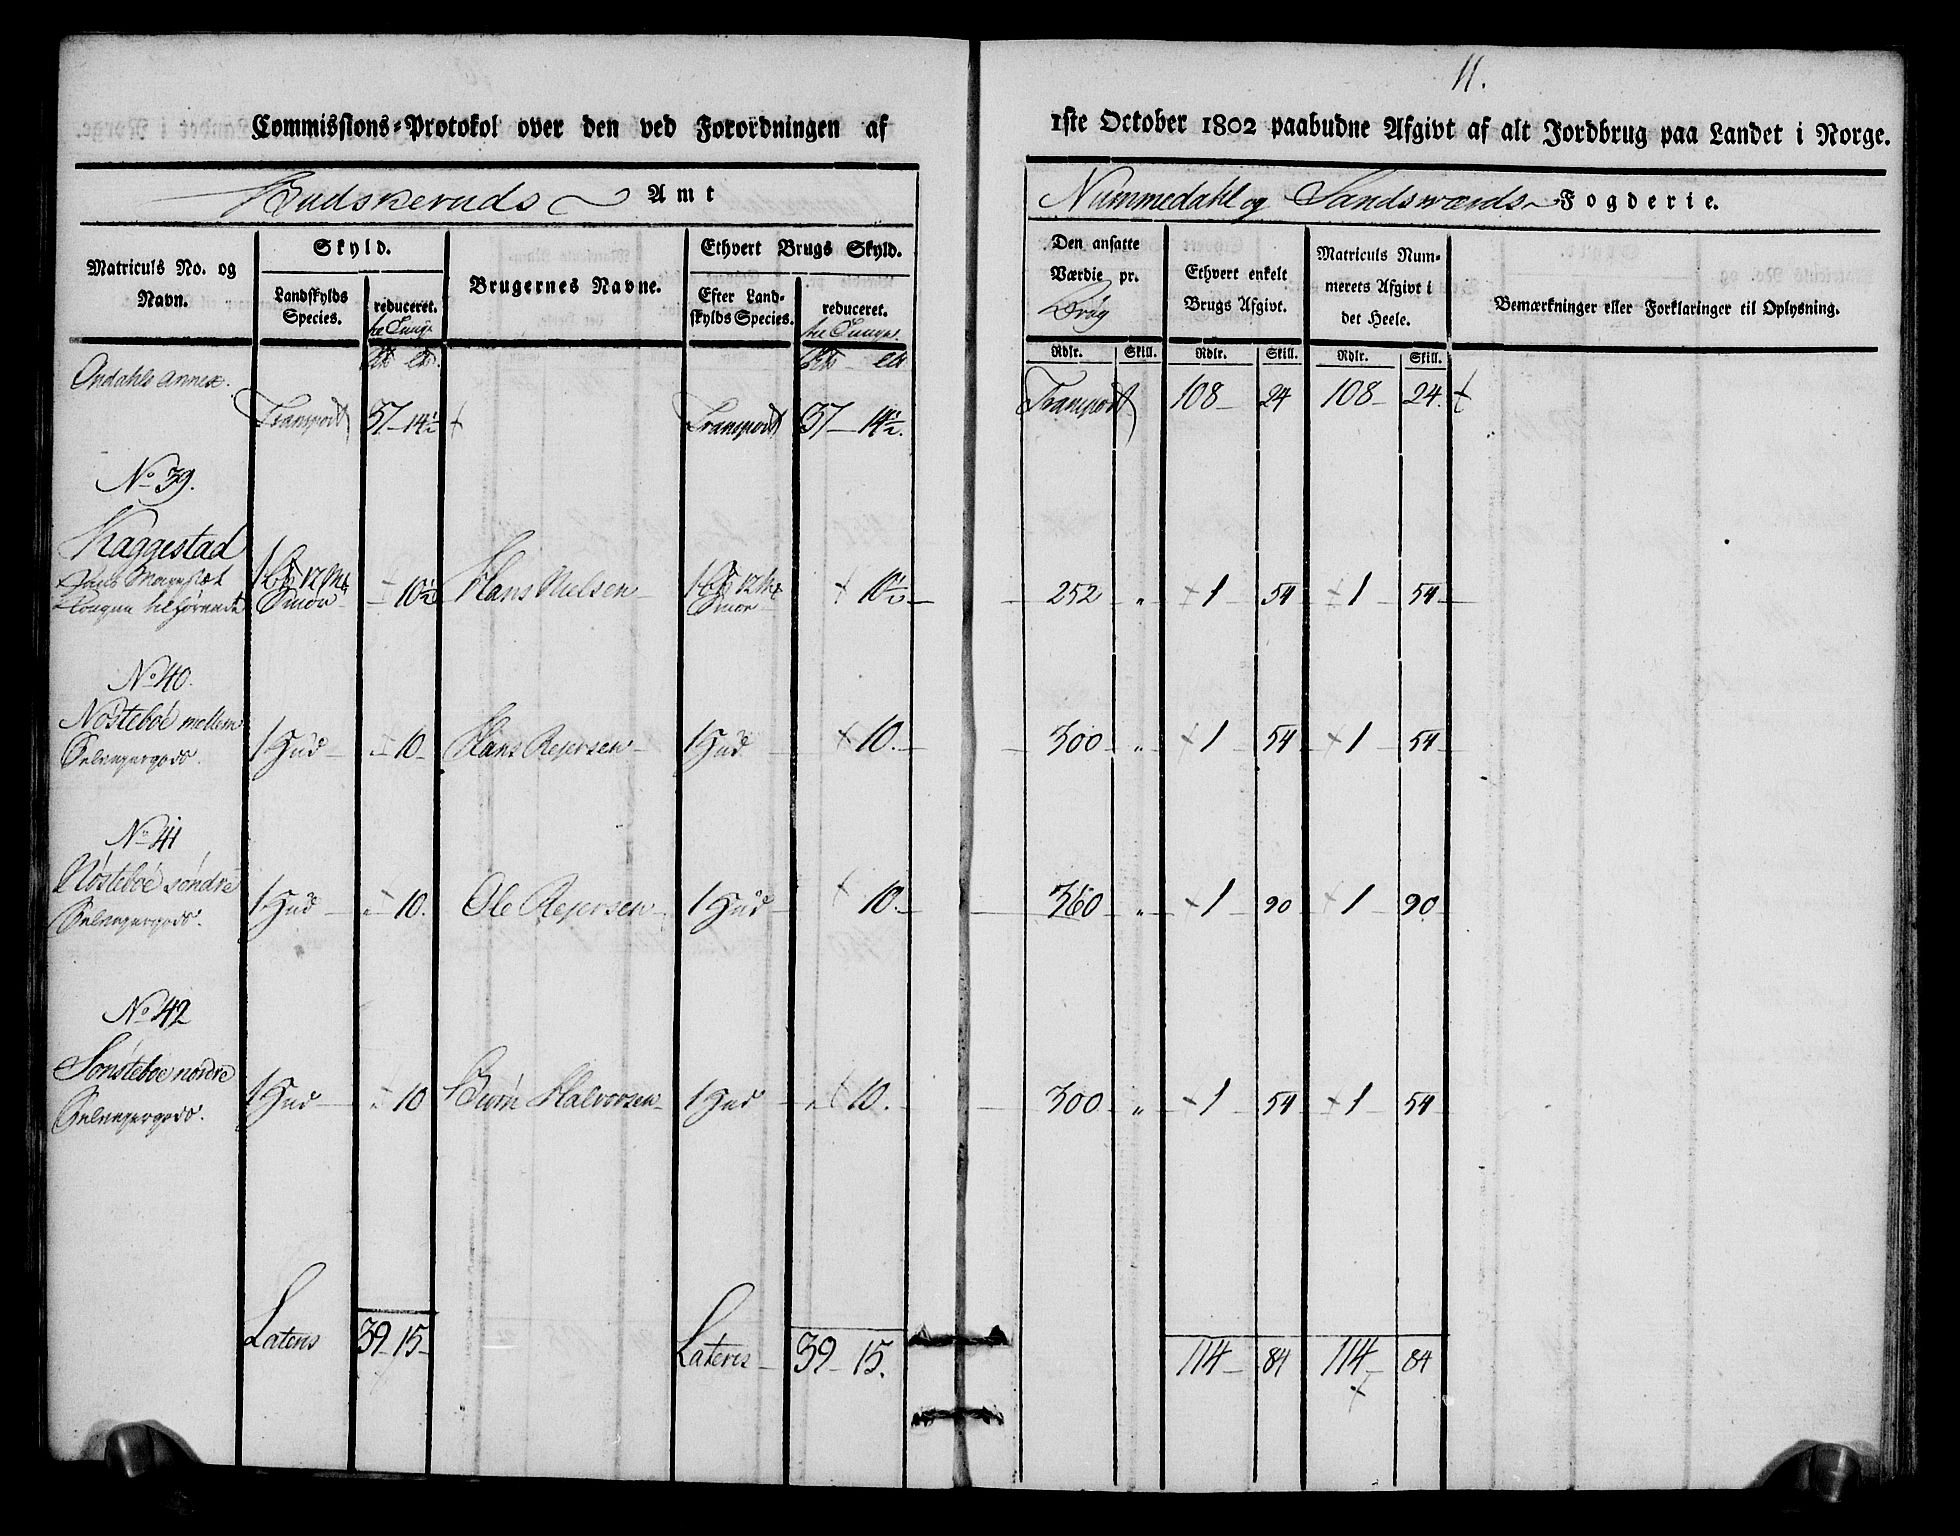 11.
Commissions-Protokol over den ved Forordningen af
1ste October 1802 paabudne Afgivt af alt Jordbrug paa Landet i Norge.
Budskeruds Amt
Nummedahl og Sandsværds Fogderie.
Matriculs No. og Navn.
Skyld.
Landskylds Species.
reduceret.
Brugernes Navne.
Ethvert Brugs Skyld.
Efter Landskylds Species.
reduceret.
Den ansatte Værdie pr.
Ethvert enkelt Brugs Afgivt.
Matriculs Nummerets Afgivt i det Heele.
Bemærkninger eller Forklaringer til Oplysning.
Rdlr. Skill. Rdlr. Skill. Rdlr. Skill.
Ondahls Annex.
Transport 37 - 14½ Transport 37 - 14½. Transport 108 - 24 108 - 24.
No 39.
Kaggestad
Smør 10½ Hans Nielsen Smør 10½ 252 „ 1 54 1 54
No 40.
Nøsteboe mellem
1 Hud 10 Hans Rejersen 1 Hud 10. 300 „ 1 54 1 54
No 41
Nøsteboe søndre
1 Hud „ 10. Ole Rejersen 1 Hud 10. 360 „ 1 90 1 90
No 42
Sønsteboe nordre
1 Hud „ 10 Halvorsen 1 Hud „ 10. 300 „ 1 54 1 54
Lateris 39 - 15 Lateris 39 - 15. 114 84 114 84